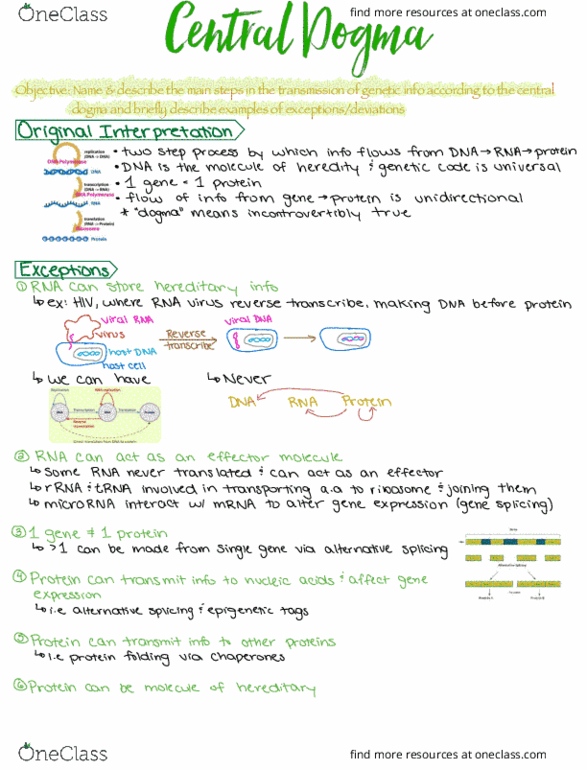 OneClass
find more resources at oneclass.com
Central Dogma
Objective: Name & describe the main steps in the transmission of genetic info according to the central
dogma and briefly describe examples of exceptions/deviations
Original Interpretation
• two step process by which info flows from DNA→RNA→protein
• DNA is the molecule of heredity & genetic code is universal
• 1 gene = 1 protein
• flow of info from gene → protein is unidirectional
* "dogma" means incontrovertibly true
replication
(DNA → DNA)
DNA Polymerase
DNA
transcription
(DNA → RNA)
RNA Polymerase
RNA
translation
(RNA → Protein)
Ribosome
Protein
Exceptions
① RNA can store hereditary info
↳ ex: HIV, where RNA virus reverse transcribe, making DNA before protein
viral RNA
virus
host DNA
host cell
Reverse
transcribe
viral DNA
↳ we can have
↳ Never
Replication
RNA replication
DNA
Transcription
RNA
Translation
Protein
Reverse
transcription
DNA RNA Protein
② RNA can act as an effector molecule
↳ some RNA never translated & can act as an effector
↳ rRNA & tRNA involved in transporting a.a to ribosome & joining them
↳ microRNA interact w/ mRNA to alter gene expression (gene splicing)
③ 1 gene ≠ 1 protein
↳ >1 can be made from single gene via alternative splicing
Alternative Splicing
Protein A
Protein B
④ Protein can transmit info to nucleic acids & affect gene
expression
↳ i.e alternative splicing & epigenetic tags
⑤ Protein can transmit info to other proteins
↳ i.e protein folding via chaperones
⑥ Protein can be molecule of hereditary
OneClass
find more resources at oneclass.com